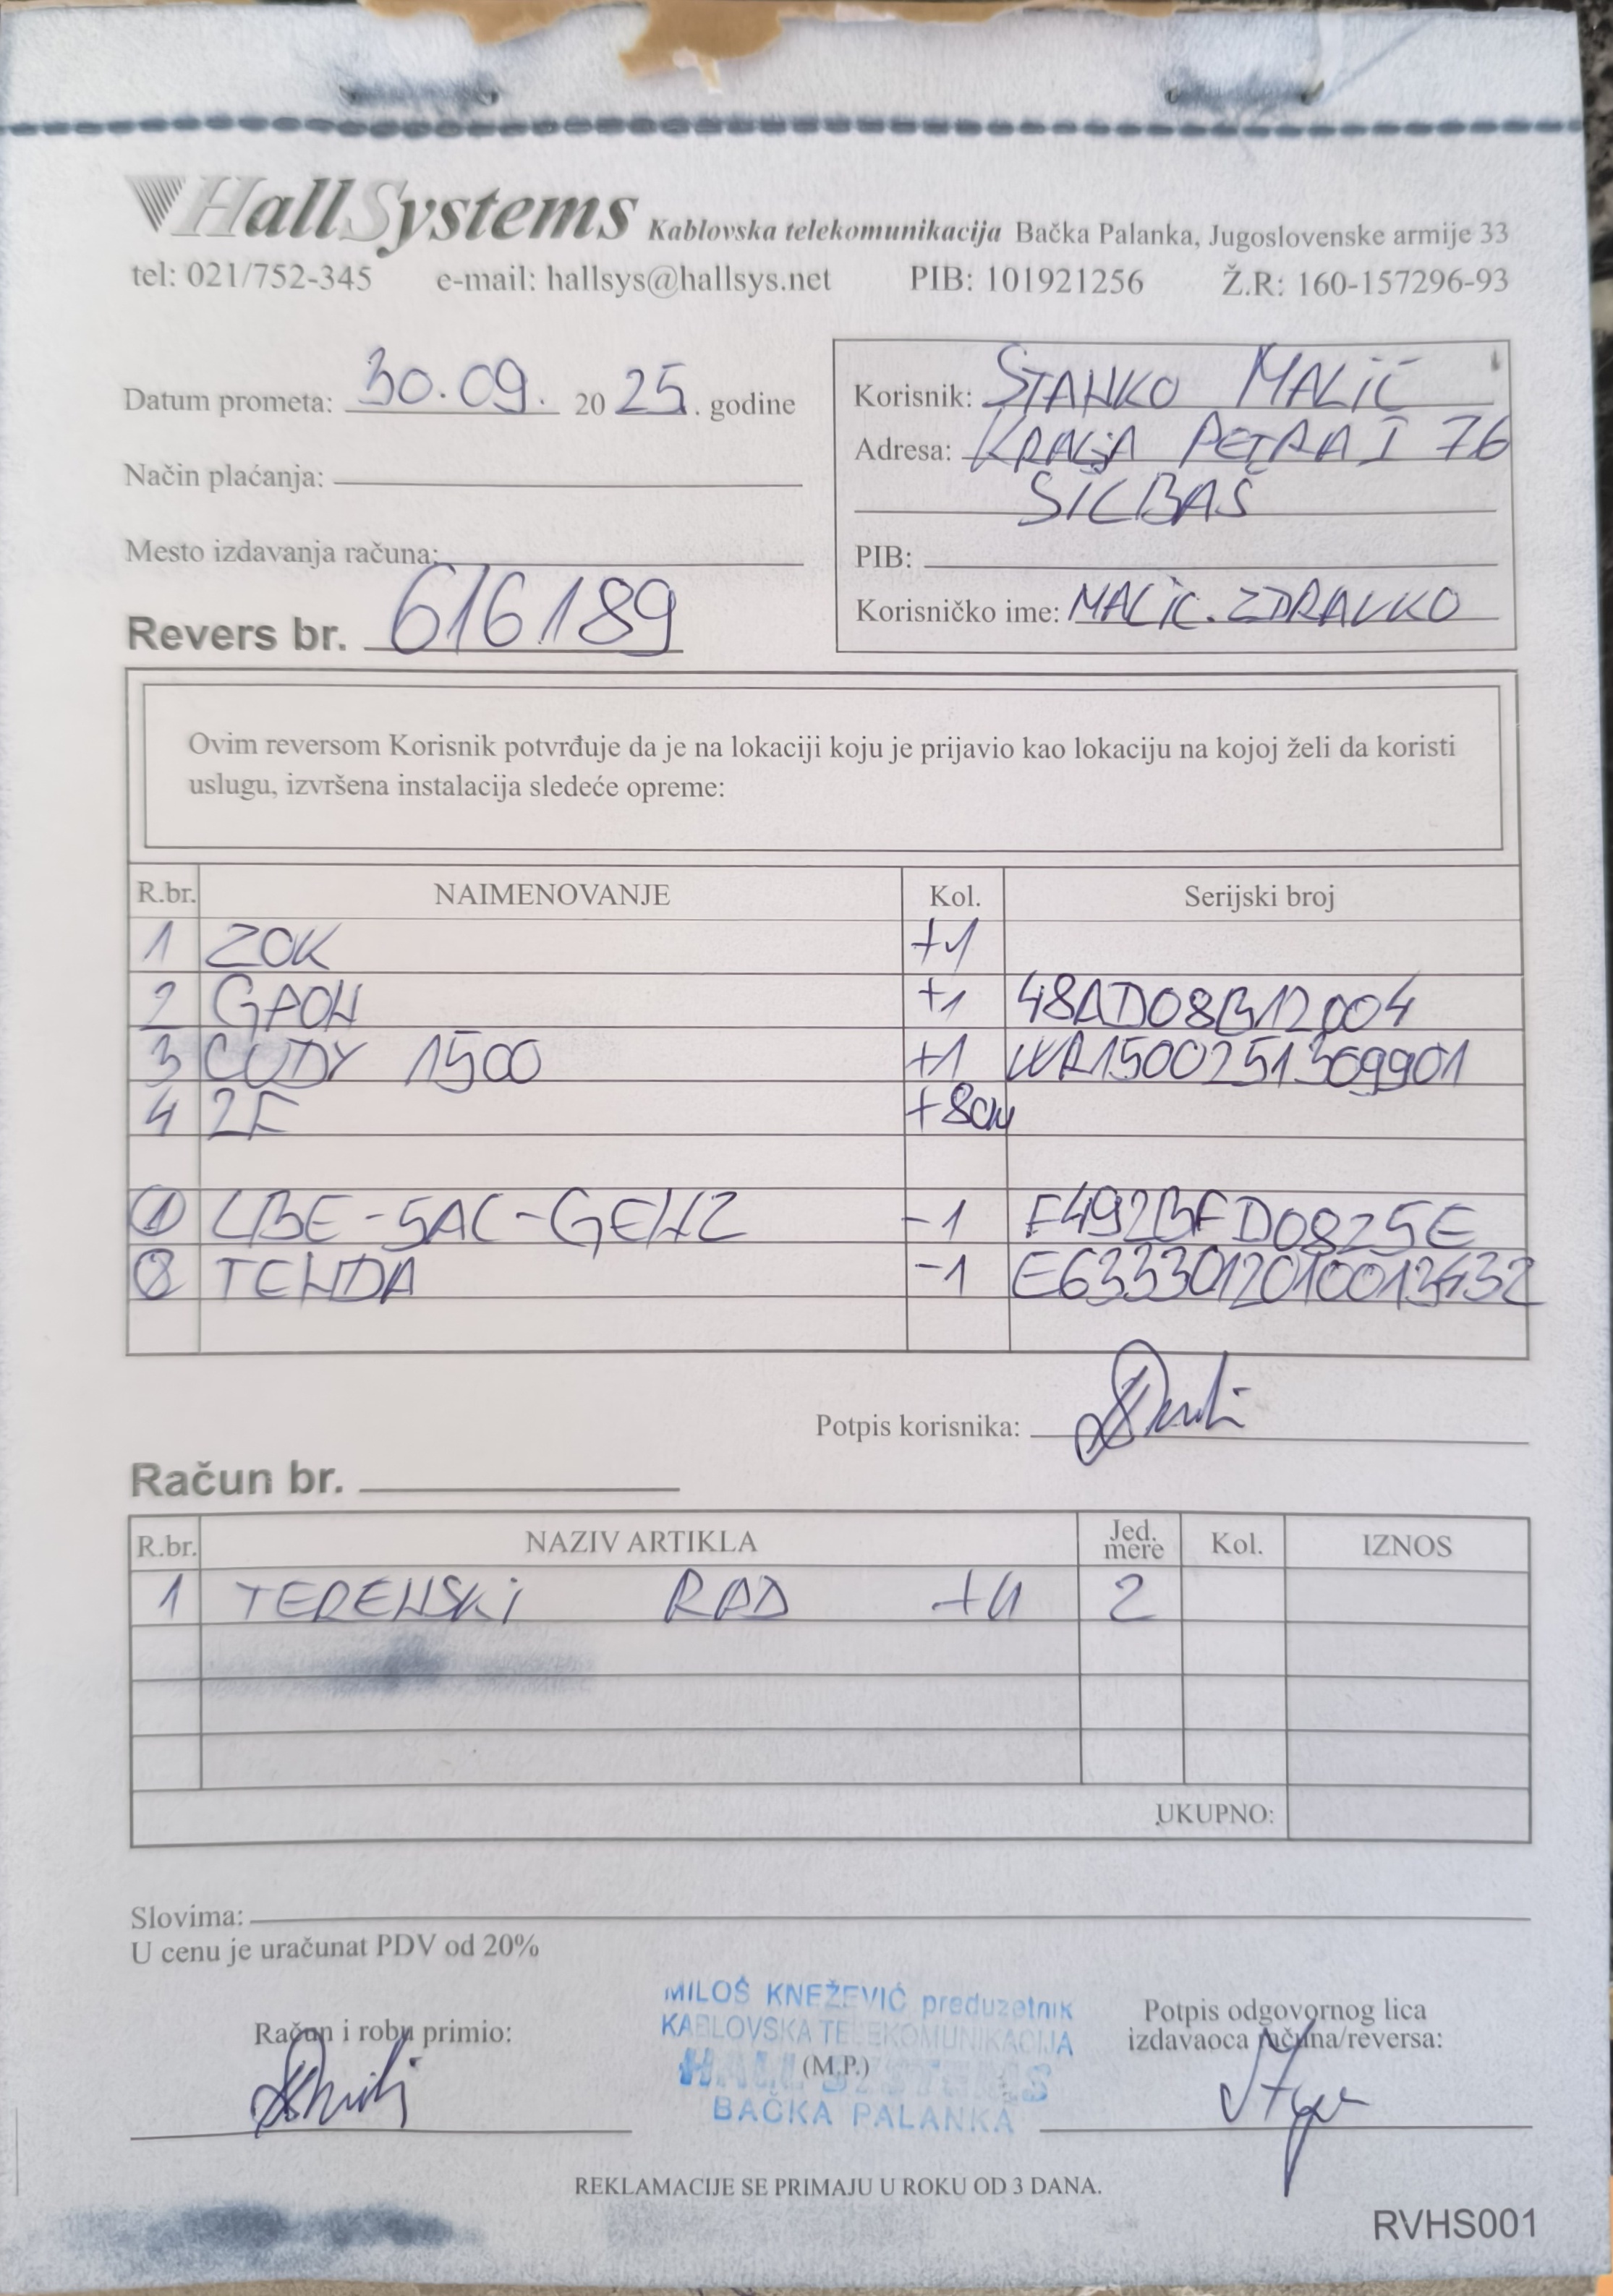 HallSystems Kablovska telekomunikacija Bačka Palanka, Jugoslovenske armije 33
tel: 021/752-345 e-mail: hallsys@hallsys.net PIB: 101921256 Ž.R: 160-157296-93
Datum prometa: 30.09. 2025. godine
Način plaćanja:
Mesto izdavanja računa:
Revers br. 616189
Korisnik: STANKO MALIĆ
Adresa: KRALJA PETRA I 76
SILBAŠ
PIB:
Korisničko ime: MALIC.ZDRAVKO
Ovim reversom Korisnik potvrđuje da je na lokaciji koju je prijavio kao lokaciju na kojoj želi da koristi
uslugu, izvršena instalacija sledeće opreme:
R.br. NAIMENOVANJE Kol. Serijski broj
1 ZOK +1
2 GPON +1 48AD08B12004
3 CUDY 1500 +1 WR1500251369901
4 2F
1 LBE-5AC-GEN2 -1 F492BFD0825E
2 TENDA -1
Potpis korisnika:
Račun br.
R.br. NAZIV ARTIKLA Jed. mere Kol. IZNOS
1 TERENSKI RAD 2
UKUPNO:
Slovima:
U cenu je uračunat PDV od 20%
Račun i robu primio:
MILOŠ KNEŽEVIĆ preduzetnik
KABLOVSKA TELEKOMUNIKACIJA
(M.P.)
HALL SYSTEMS
BAČKA PALANKA
Potpis odgovornog lica
izdavaoca računa/reversa:
REKLAMACIJE SE PRIMAJU U ROKU OD 3 DANA.
RVHS001